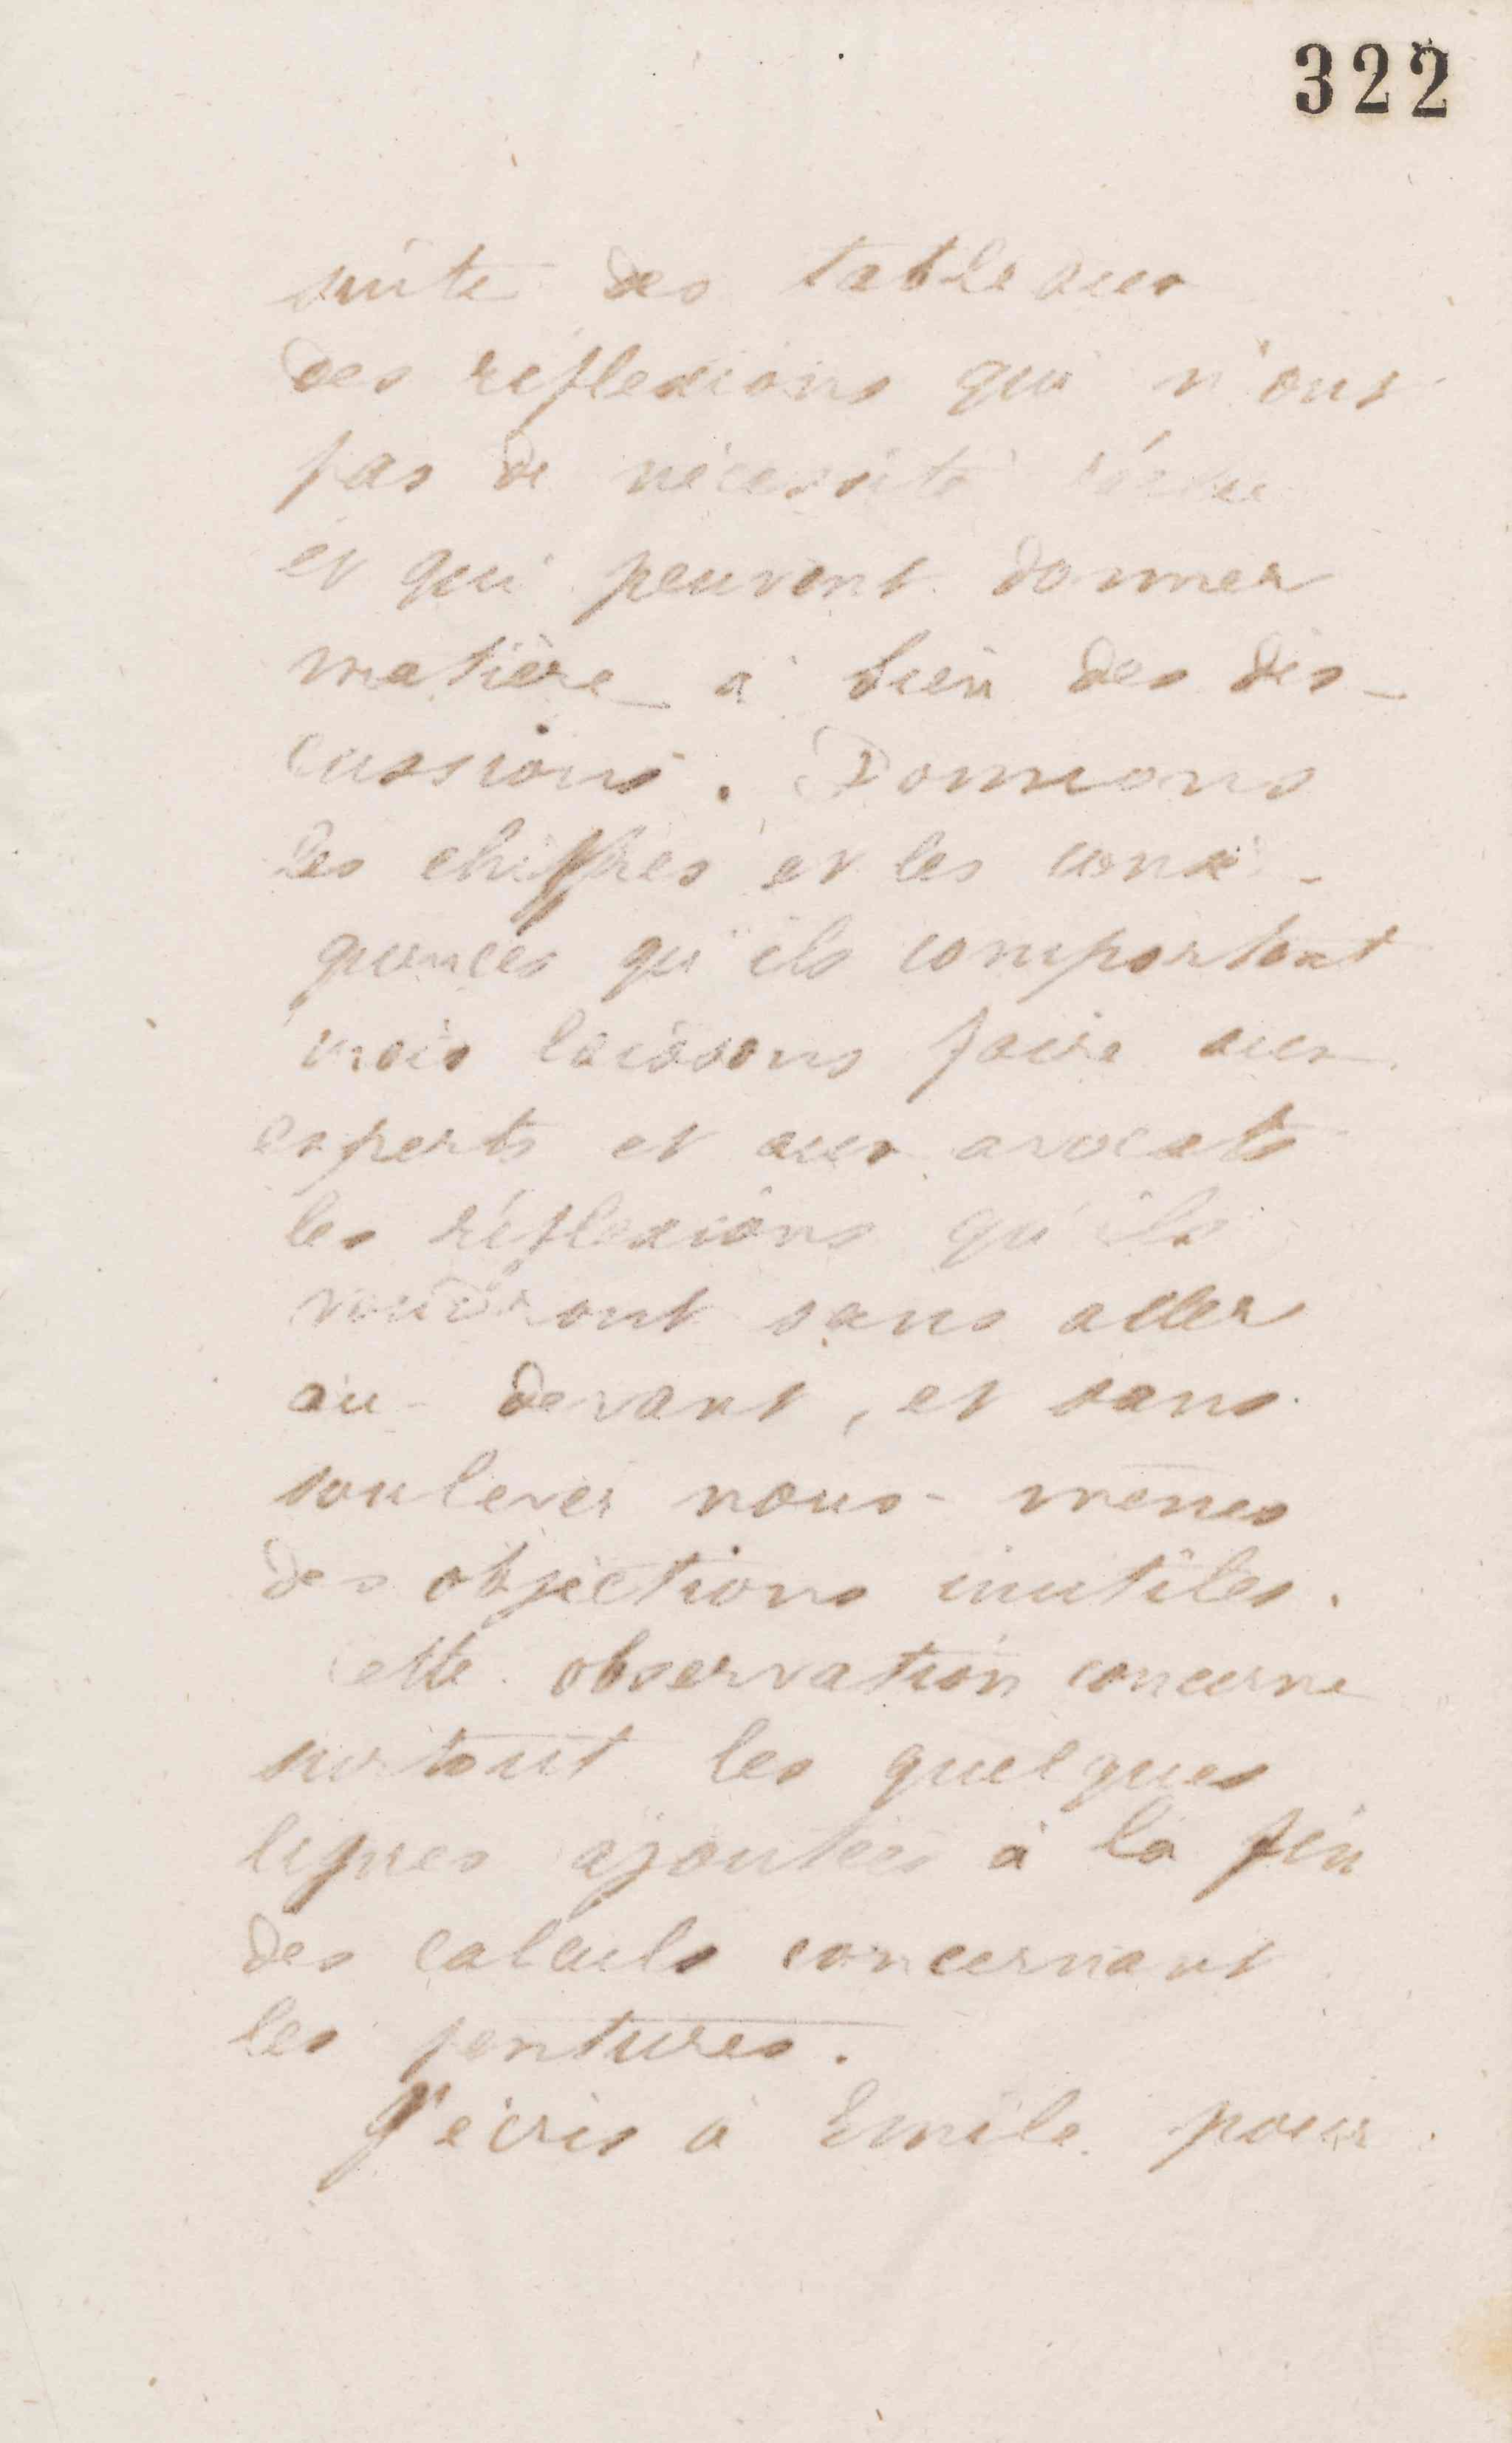 322
suite des tableaux
des réflexions qui n'ont
pas de nécessité réelle
et qui peuvent donner
matière à bien des dis-
cussions. Donnons
les chiffres et les consé-
quences qu'ils comportent
mais laissons faire aux
experts et aux avocats
les réflexions qu'ils
voudront sans aller
au-devant, et sans
soulever nous-mêmes
des objections inutiles.
Cette observation concerne
surtout les quelques
lignes ajoutées à la fin
des calculs concernant
les pentures.
J'écris à Emile pour